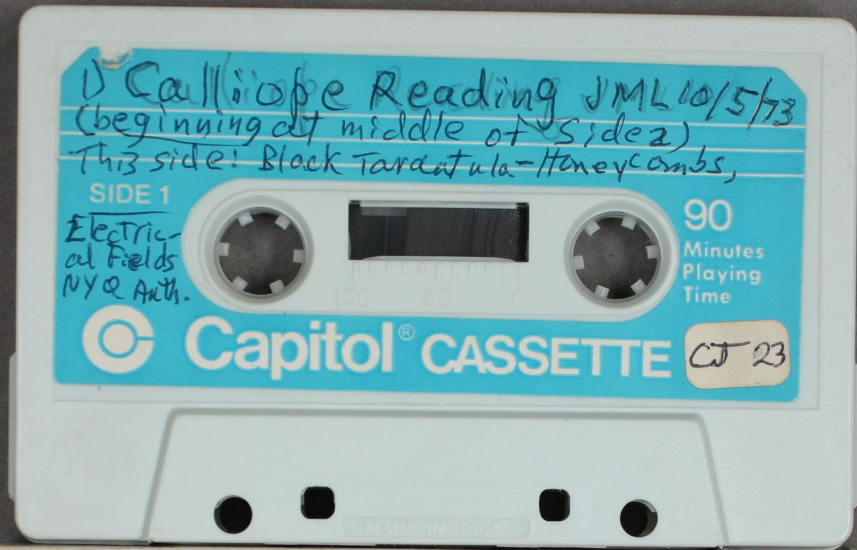 1) Calliope Reading JML 10/5/73
(beginning at middle of Side 2),
This side: Black Tarantula-Honeycombs,
SIDE 1
Electric-
al Fields
NYQ Anth.
90
Minutes
Playing
Time
100 50 0
Capitol® CASSETTE
CJ 23
MADE IN U.S.A.